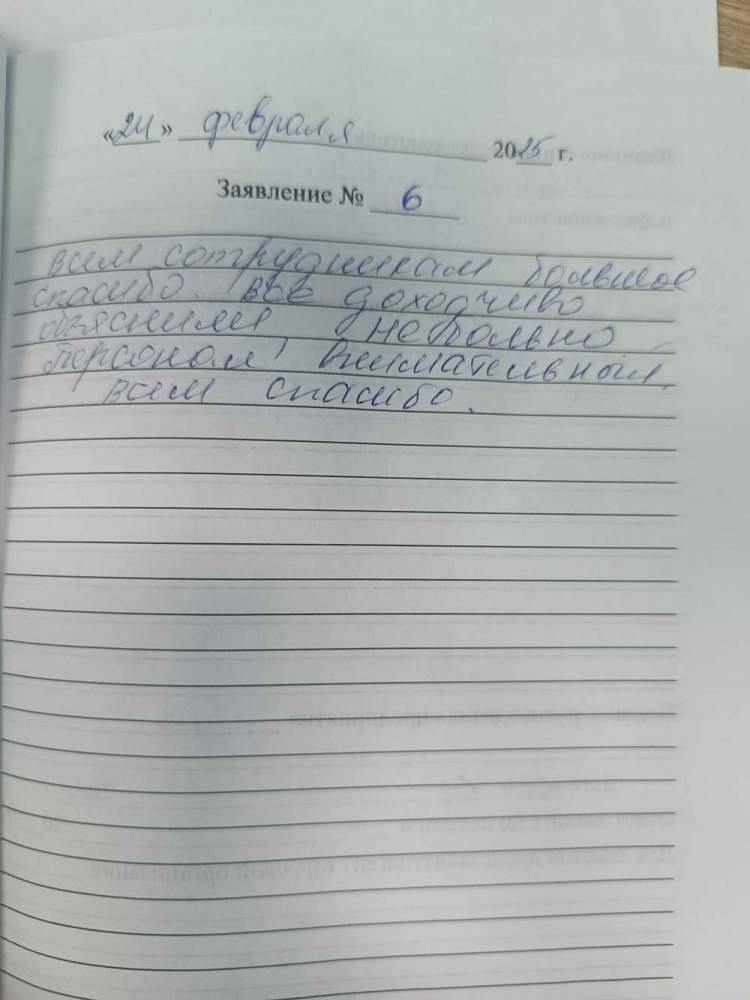 «24» февраля 2025 г.
Заявление № 6
всем сотрудникам большое
спасибо. все доходчиво
объяснили небольно
персонал внимательный.
всем спасибо.